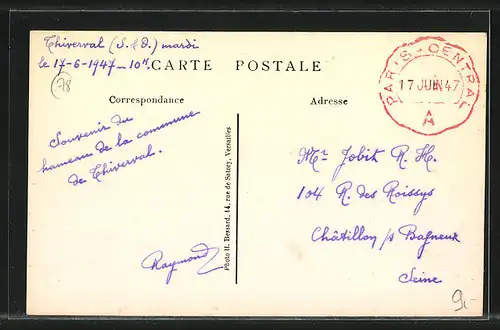 Thiverval (S.&O.) mardi
le 17-6-1947 — 10H.
78
CARTE POSTALE
Correspondance
Adresse
PARIS-CENTRAL
17 JUIN 47
A
Souvenir du
hameau de la commune
de Thiverval.
Raymond
Photo H. Bessard, 14, rue de Satory, Versailles
Mr Jobit R. H.
104 R. des Roissys
Châtillon s/s Bagneux
Seine
9,-